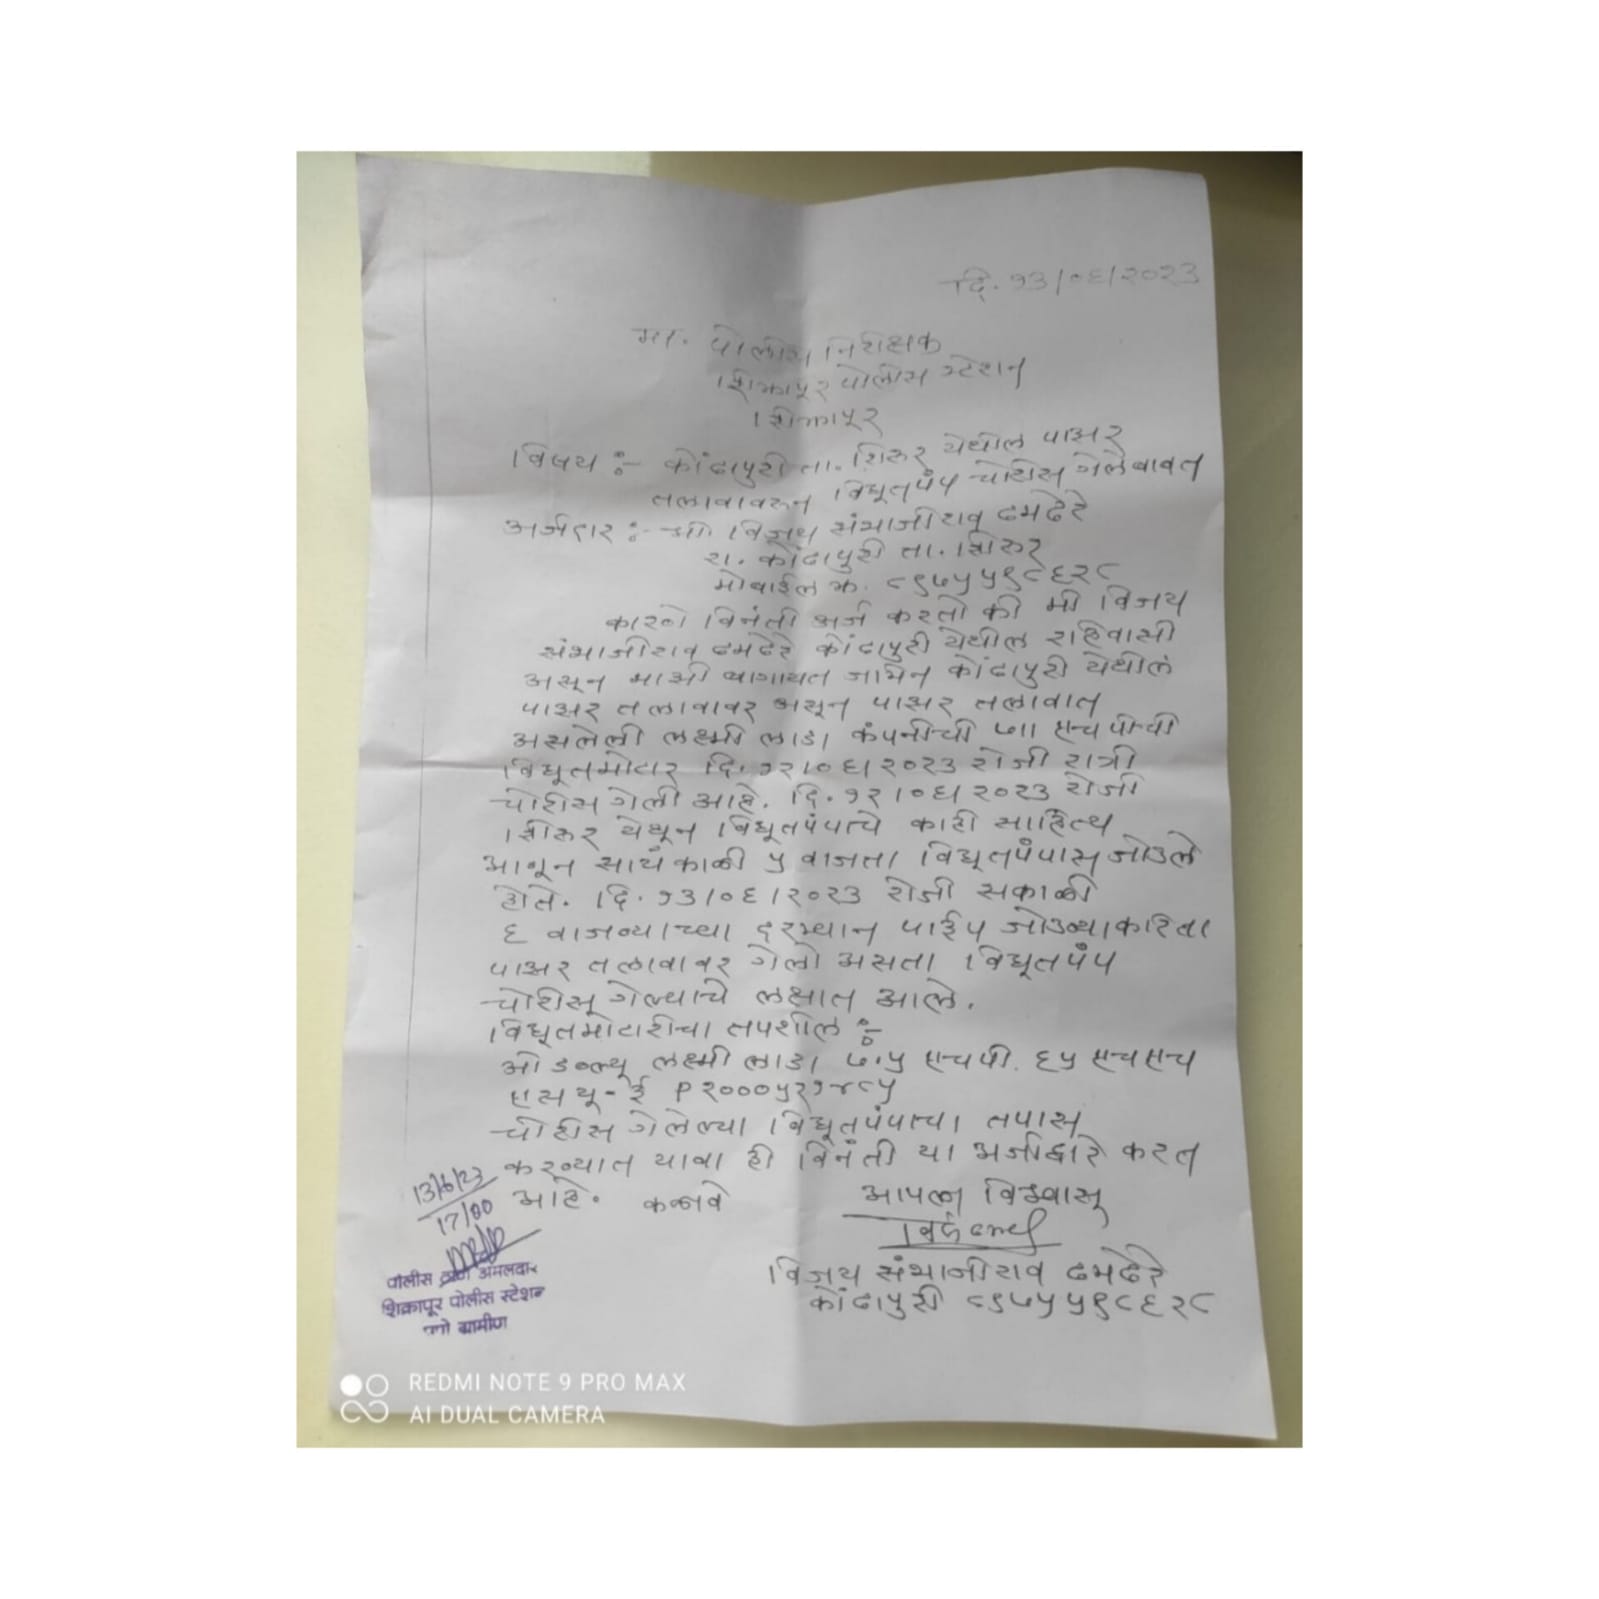 दि. १३/०६/२०२३
मा. पोलीस निरीक्षक
शिक्रापूर पोलीस स्टेशन
शिक्रापूर
विषय :- कोंढापुरी ता. शिरूर येथील पाझर
तलावावरून विद्यूतपंप चोरीस गेलेबाबत
अर्जदार :- श्री. विजय संभाजीराव ढमढेरे
रा. कोंढापुरी ता. शिरूर
मोबाईल क्र. ८९७५५९८६२८
कारणे विनंती अर्ज करतो की मी विजय
संभाजीराव ढमढेरे कोंढापुरी येथील राहिवासी
असून माझी बागायत जमिन कोंढापुरी येथील
पाझर तलावावर असून पाझर तलावात
असलेली लक्ष्मी लाडा कंपनीची ७॥ एच पीची
विद्यूतमोटार दि. १२/०६/२०२३ रोजी रात्री
चोरीस गेली आहे. दि. १२/०६/२०२३ रोजी
शिरूर येथून विद्यूतपंपाचे काही साहित्य
आणून सायंकाळी ५ वाजता विद्यूतपंपास जोडले
होते. दि. १३/०६/२०२३ रोजी सकाळी
६ वाजण्याच्या दरम्यान पाईप जोडण्याकरिता
पाझर तलावावर गेलो असता विद्यूतपंप
चोरीस गेल्याचे लक्षात आले.
विद्यूतमोटारीचा तपशील :-
ओ डब्ल्यू लक्ष्मी लाडा ७.५ एचपी. ६५ एचएच
एस यू - ई P २०००५२१४८५
चोरीस गेलेल्या विद्यूतपंपाचा तपास
करण्यात यावा ही विनंती या अर्जाद्वारे करत
आहे. कळावे
आपला विश्वासू
विजय संभाजीराव ढमढेरे
कोंढापुरी ८९७५५९८६२८
13/6/23
17/00
पोलीस ठाणे अंमलदार
शिक्रापूर पोलीस स्टेशन
पुणे ग्रामीण
REDMI NOTE 9 PRO MAX
AI DUAL CAMERA